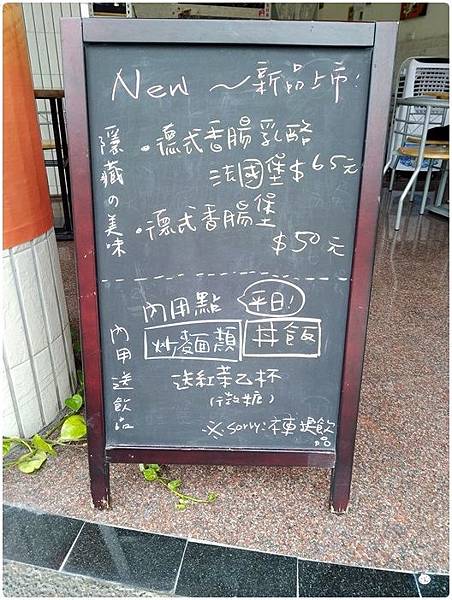 New ~ 新品上市!
隱藏の美味
·德式香腸乳酪
法國堡$65元
·德式香腸堡
$50元
內用送飲品
內用點 平日!
炒麵類 丼飯
送紅茶乙杯
(微糖)
※sorry:本堤飲品